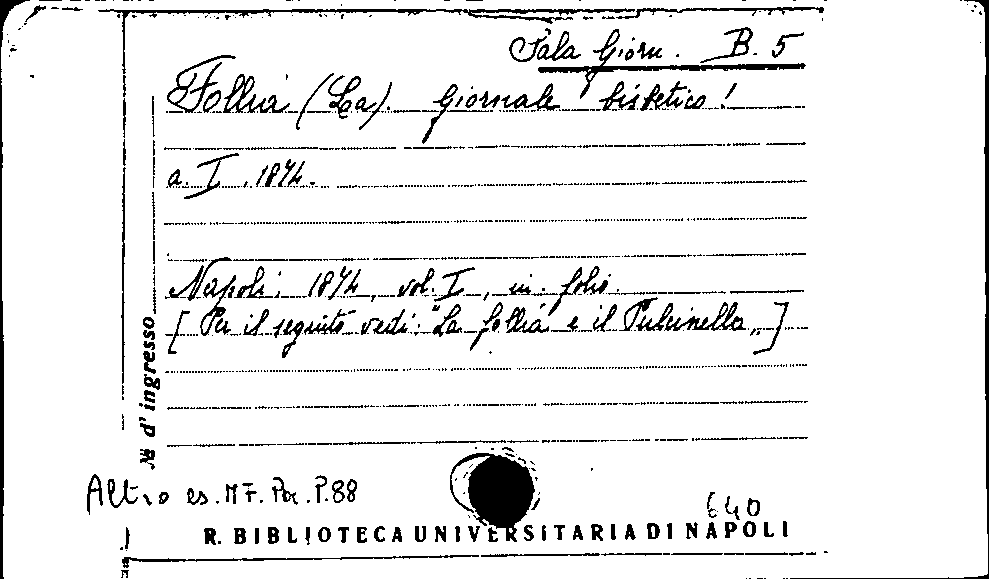 Sala Giorn. B. 5
Follia (La). Giornale bisbetico!
a. I. 1874.
Napoli, 1874, vol. I, in folio.
[Per il seguito vedi: "La follia e il Pulcinella„]
№ d'ingresso
Altro es. MF. Per. P.88
640
R. BIBLIOTECA UNIVERSITARIA DI NAPOLI